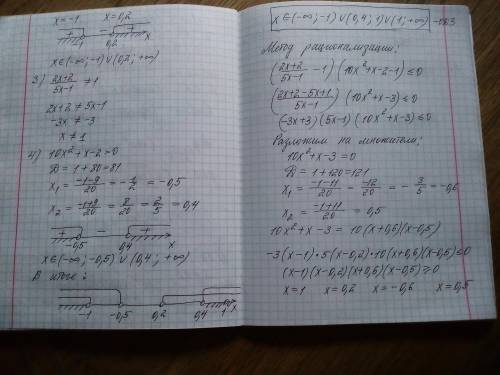 x = -1    x = 0,2
+    -    +
-1    0,2    x
x∈(-∞; -1)∪(0,2; +∞)
3) (2x+2)/(5x-1) ≠ 1
2x+2 ≠ 5x-1
-3x ≠ -3
x ≠ 1
4) 10x²+x-2=0
D = 1+80=81
x₁ = (-1-9)/20 = -1/2 = -0,5
x₂ = (-1+9)/20 = 8/20 = 2/5 = 0,4
+    -    +
-0,5    0,4    x
x∈(-∞; -0,5)∪(0,4; +∞)
В итоге:
-1    -0,5    0,2    0,4    1    x
x∈(-∞; -1)∪(0,4; 1)∪(1; +∞) -ОДЗ
Метод рационализации:
((2x+2)/(5x-1) - 1)(10x²+x-2-1) ≤ 0
((2x+2-5x+1)/(5x-1))(10x²+x-3) ≤ 0
(-3x+3)(5x-1)(10x²+x-3) ≤ 0
Разложим на множители:
10x²+x-3=0
D = 1+120=121
x₁ = (-1-11)/20 = -12/20 = -3/5 = -0,6
x₂ = (-1+11)/20 = 0,5
10x²+x-3 = 10(x+0,6)(x-0,5)
-3(x-1)·5(x-0,2)·10(x+0,6)(x-0,5)≤0
(x-1)(x-0,2)(x+0,6)(x-0,5)≥0
x=1    x=0,2    x=-0,6    x=0,5